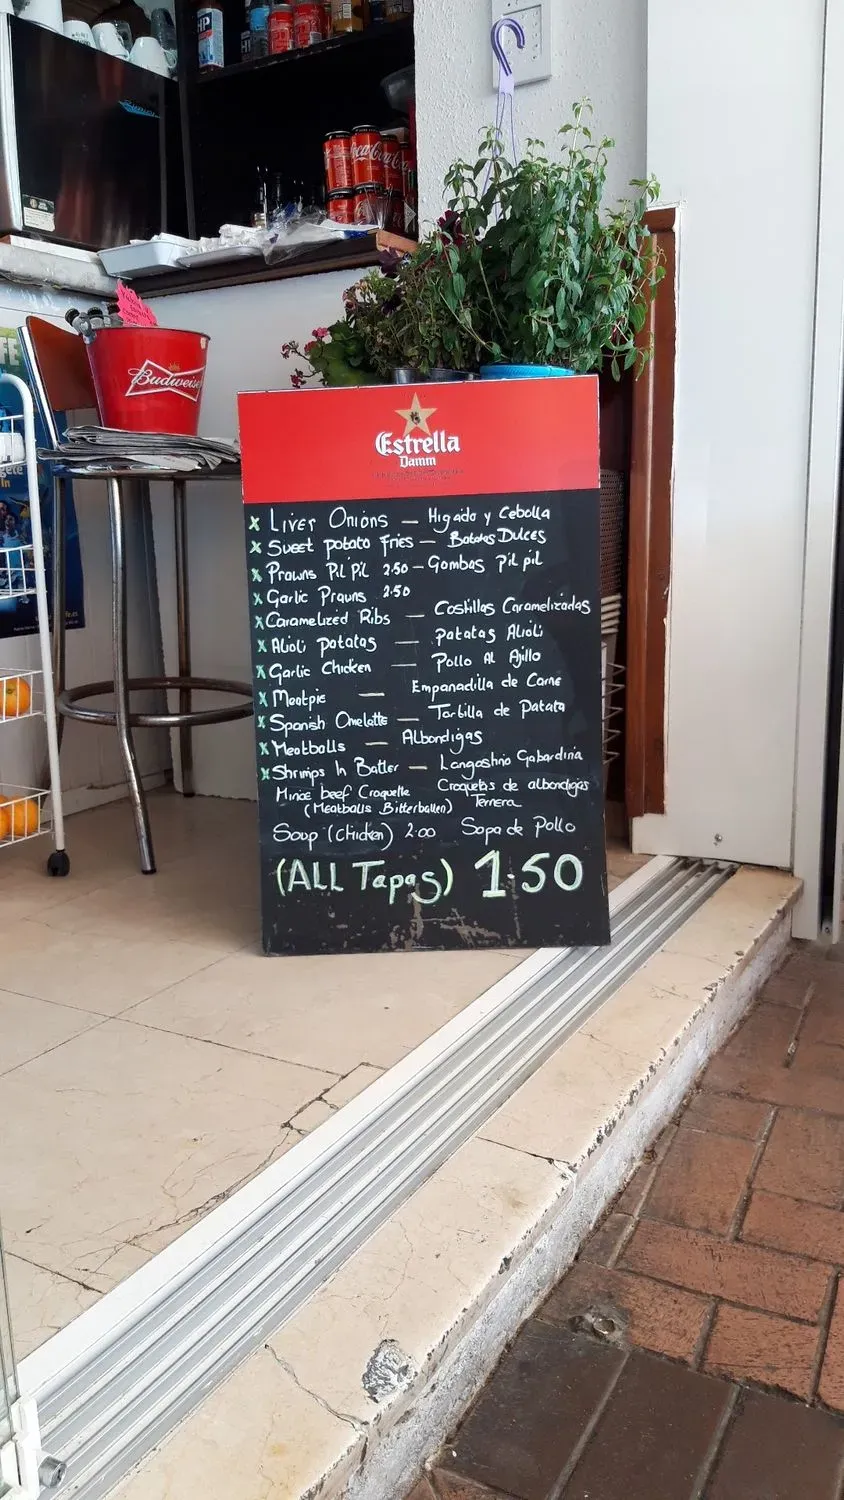 HP
Coca-Cola
Budweiser
Estrella
Damm
x Liver Onions — Higado y Cebolla
x Sweet potato fries — Batatas Dulces
x Prawns Pil Pil 2.50 — Gambas Pil pil
x Garlic Prawns 2.50
x Caramelized Ribs — Costillas Caramelizadas
x Alioli patatas — patatas Alioli
x Garlic Chicken — Pollo Al Ajillo
x Meatpie — Empanadilla de Carne
x Spanish Omelette — Tortilla de Patata
x Meatballs — Albondigas
x Shrimps In Batter — Langostino Gabardina
Mince beef Croquette Croquetas de albondigas
(Meatballs Bitterballen) Ternera
Soup (chicken) 2.00 Sopa de Pollo
(ALL Tapas) 1.50